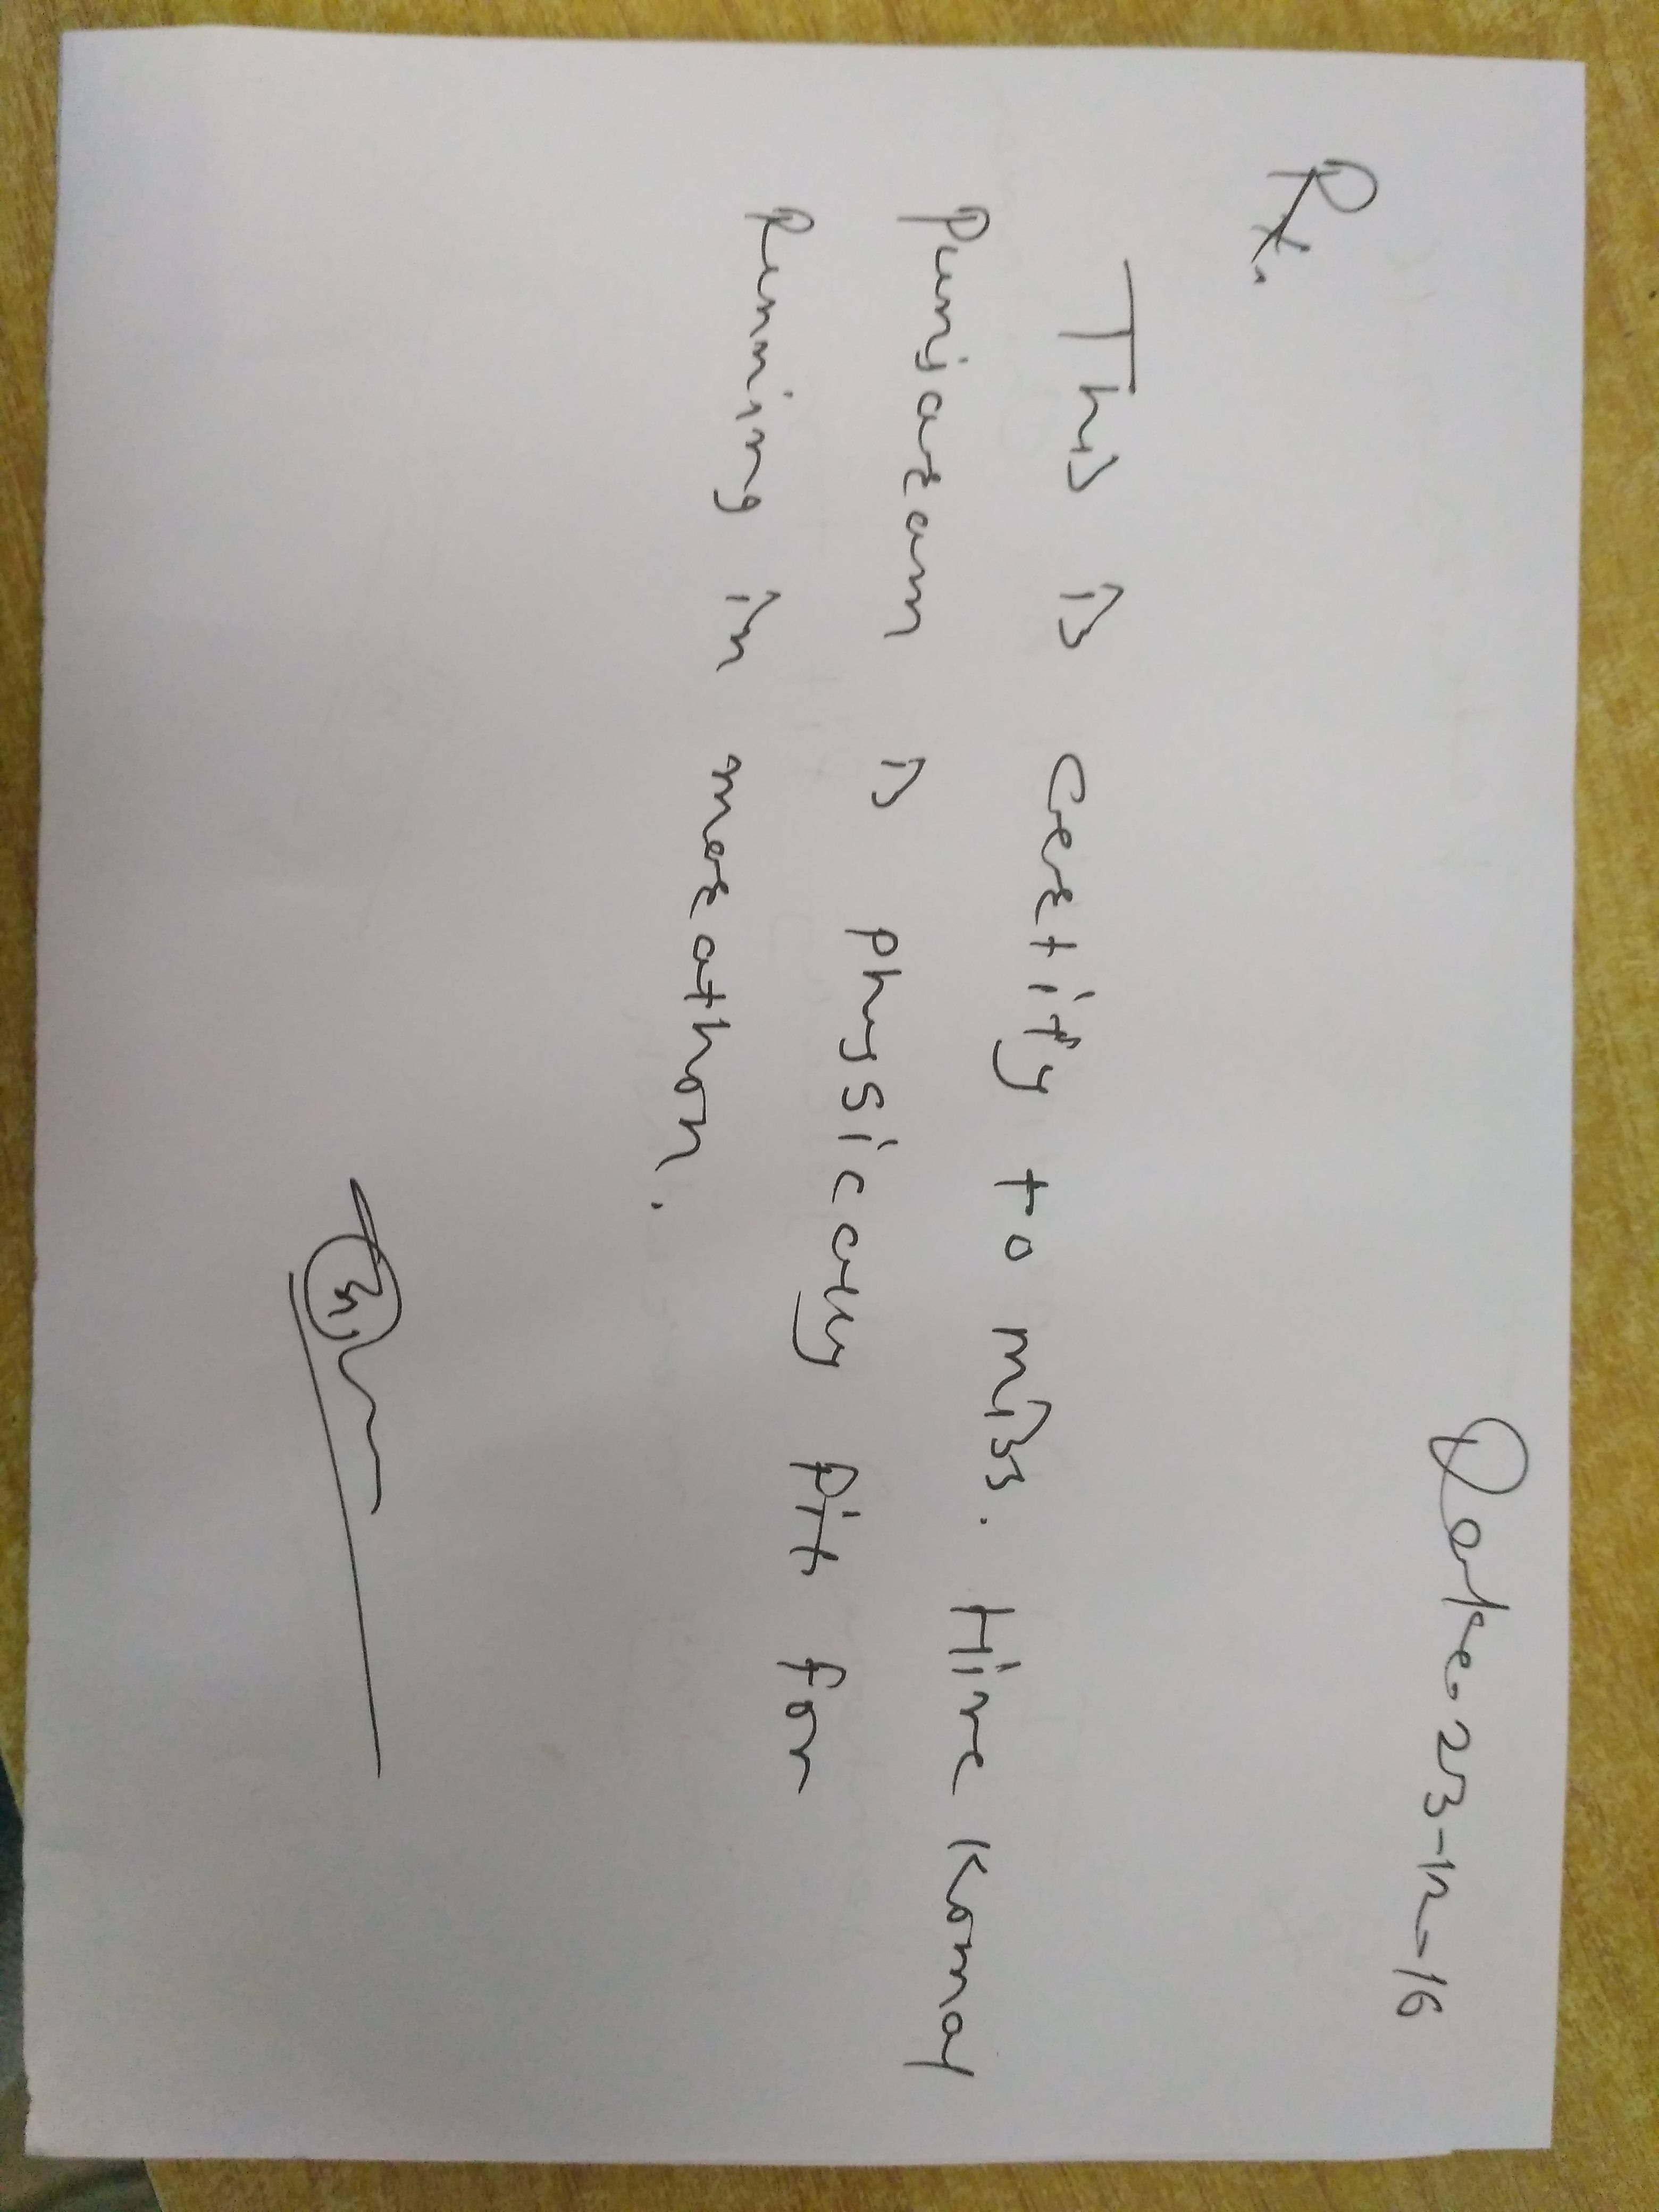 Date. 23-12-16
Rx.
This is certify to miss. Hire Komal
Punjaram is physically Pit for
Running in marathon.